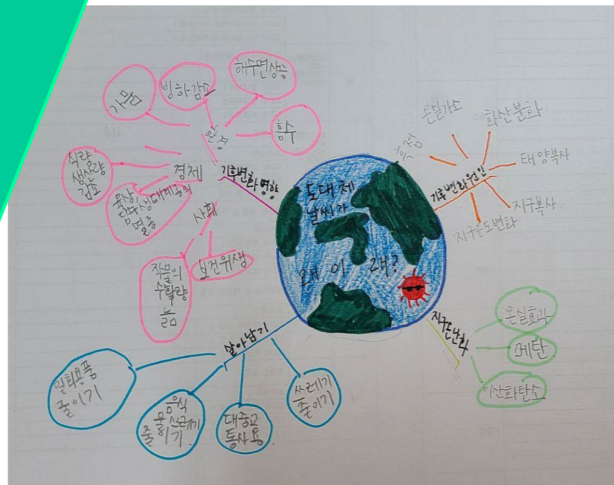 도대체
날씨가
왜 이 래?
기후변화영향
환경
가뭄
빙하감소
해수면상승
홍수
경제
식량
생산량
감소
사회
작물의
수확량
보건위생
기후변화원인
온실가스
화산분화
태양복사
지구복사
지구온도변화
지구온난화
온실효과
메탄
이산화탄소
살아남기
일회용품
줄이기
음식
줄이기
대중교
통사용
쓰레기
줄이기